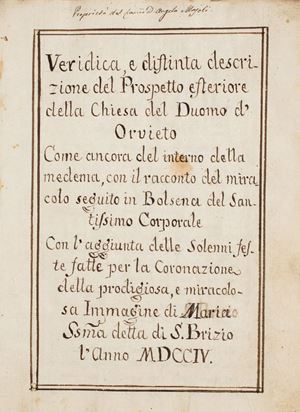 Proprietà del D Angelo Mazoli
Veridica, e distinta descri
zione del Prospetto esteriore
della Chiesa del Duomo d'
Orvieto
Come ancora del interno della
medema, con il racconto del mira
colo seguito in Bolsena del San
tissimo Corporale
Con l'aggiunta delle Solenni fes
te fatte per la Coronazione
della prodigiosa, e miracolo
sa Immagine di Maria
Ssma detta di S. Brizio
l'Anno MDCCIV.